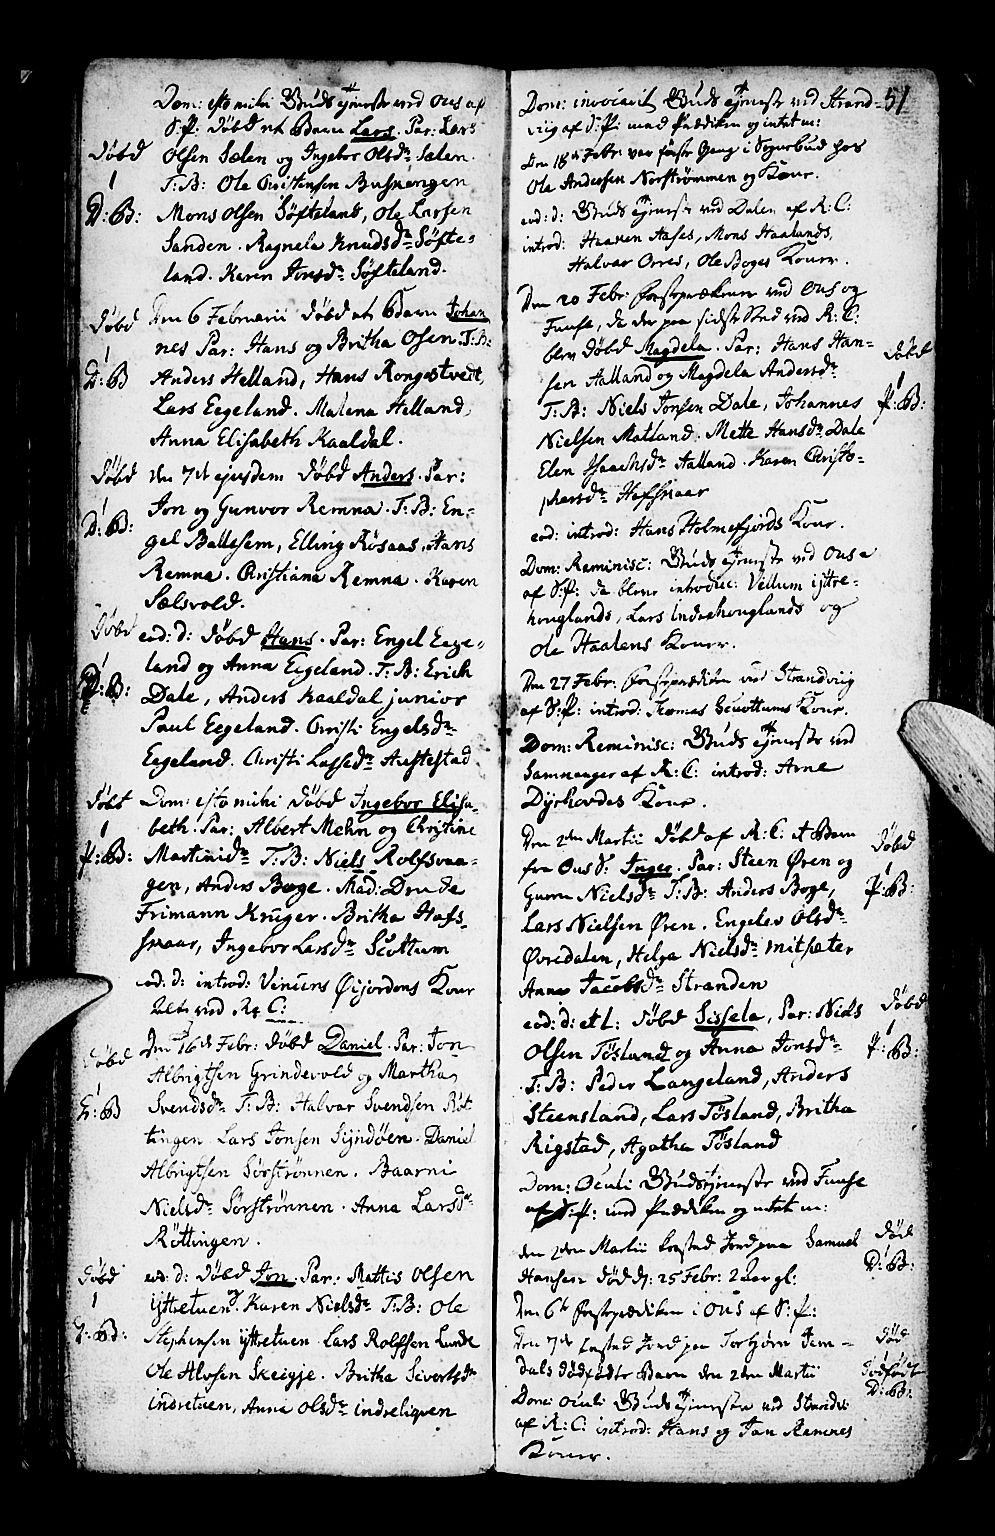 Dom: esto mihi Guds tjeneste ved Ous af
S: P: døbd et Barn Lars. Par: Lars
Døbd
Olsen Sælen og Ingebor Olsdr Sælen.
1
T: B: Ole Christensen Buskengen
D: B:
Mons Olsen Søfteland, Ole Larsen
Sanden. Ragnela Knudsdr Søfte=
land. Karen Jonsdr Søfteland.
Døbd
Den 6 Februarii døbd et Barn Johan
1
nes Par: Hans og Britha Osen. T: B:
D: B
Anders Helland, Hans Rongestvedt,
Lars Eegeland. Malena Helland,
Anna Elisabeth Kaaldal.
Døbd
den 7de ejusdem døbd Anders. Par:
1
Jon og Gunvor Remna. T: B: En=
D: B:
gel Ballesem, Elling Røsaas, Hans
Remna. Christiana Remna. Karen
Sælsvold.
Døbd
eod: d: døbd Hans. Par: Engel Eege=
1
land og Anna Eegeland. T: B: Erich
P: B:
Dale, Anders Kaaldal junior
Paul Eegeland. Christi Engelsdr
Eegeland. Christi Lassedr Austestad
Døbt
Dom: esto mihi døbd Ingebor Elisa=
1
beth. Par: Albert Mehn og Christine
P: B:
Martinidr T: B: Niels Rolfsvaa=
gen, Anders Boge. Mad: Drude
Frimann Krüger. Britha Hafs=
snaar, Ingebor Larsdr Scottum
eod: d: introd: Vincens Øijordens Kone
ved R: C:
Døbd
Den 16de Febr: døbd Daniel. Par: Jon
1
Albrigtsen Grindevold og Martha
D: B
Svendsdr T: B: Halvor Svendsen Røt
tingen Lars Jonsen Sijndøen. Daniel
Albrigtsen Sørstrønnen. Baarni
Nielsdr Sørstrønnen. Anna Larsdr
Røttingen.
Døbd
eod: d: døbd Jon. Par: Mattis Olsen
1
Ijttretuen og Karen Nielsdr T: B: Ole
D: B:
Stephensen ijttretuen Lars Rolfsen Lunde
Ole Alvsen Skeigje. Britha Sivertsdr
indretuen, Anna Olsdr indreliqven
51
Dom: invocavit Guds tjeneste ved Strand=
viig af S: P: med Prædiken og
Den 18de Febr: var første Gang i Sognebud hos
Ole Andersen Norstrømmen og Kone.
eod: d: Guds tjeneste ved Dalen af R: C:
introd: Haaven Aases, Mons Haalands,
Halvor Orres, Ole Boges Koner.
Den 20 Febr: fasteprædiken ved Ous og
Fuuse, da der paa sidste Sted ved R: C:
blev døbd Magdela. Par: Hans Han=
Døbd
sen Aalland og Magdela Andersdr
1
T: B: Niels Jonsen Dale, Johannes
P: B:
Nielsen Matland. Mette Hansdr Dale
Elen Isaachsdr Aalland. Karen Christo=
phersdr Hafsnaar
eod: introd: Hans Holmefjords Kone.
Dom: Reminisc: Guds tjeneste ved Ous
af S: P: da bleve introduc: Vellum ijttre=
houglands, Lars Indrehouglands og
Ole Haalens Koner.
Den 27 Febr: fasteprædiken ved Strandviig
af S: P: introd: Thomas Scottums Kone.
Dom: Reminisc: Guds tjeneste ved
Samnanger af R: C: introd: Arne
Dijrhovdes Kone.
Den 2den Martii døbd af R: C: et Barn
Døbd
fra Ous S: Inger. Par: Steen Øren og
1
Guren Nielsdr T: B: Anders Boge,
P: B:
Lars Nielsen Øren. Engelev Olsdr
Øvredalen, Helga Nielsdr Mitsæter
Anna Jacobsdr Stranden
eod: d: et l: døbd Sissela, Par: Niels
Døbd
Olsen Tøsland og Anna Jonsdr
1
P: B:
T: B: Peder Langeland, Anders
Steensland, Lars Tøsland, Britha
Rigstad, Agatha Tøsland
Dom: Oculi Guds tjeneste ved Fuuse
af S: P: med Prædiken og
den 2den Martii kastad Jord paa Samuel
Død
1
Hansen død d: 25 Febr: 2 Aar gl:
D: B:
Den 6te fasteprædiken i Ous af S: P:
Den 7de kastad Jord paa Torbjørn Tem=
Død
1
dals dødfødte Barn den 2den Martii
dødfødt
D: B:
Dom: Oculi Guds tjeneste ved Strandv:
af R: C: introd: Hans og Jan Remnes
Koner.